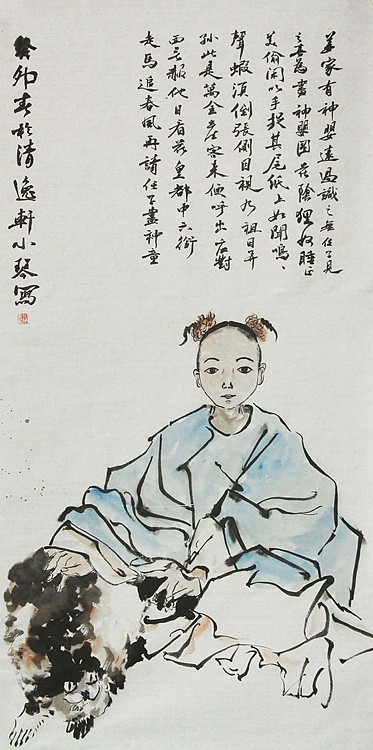 姜家有神嬰遠過識之無任子見
之喜為畫神嬰圖花陰狸奴睡正
美偷閑以手捉其尾紙上如聞嗚、
聲須倒張側目視乃祖日弄
孫此是萬金客來便呼出應對
他日看花皇都中六街
走馬追春風再請任子畫神童
癸卯春於清逸軒小琴寫